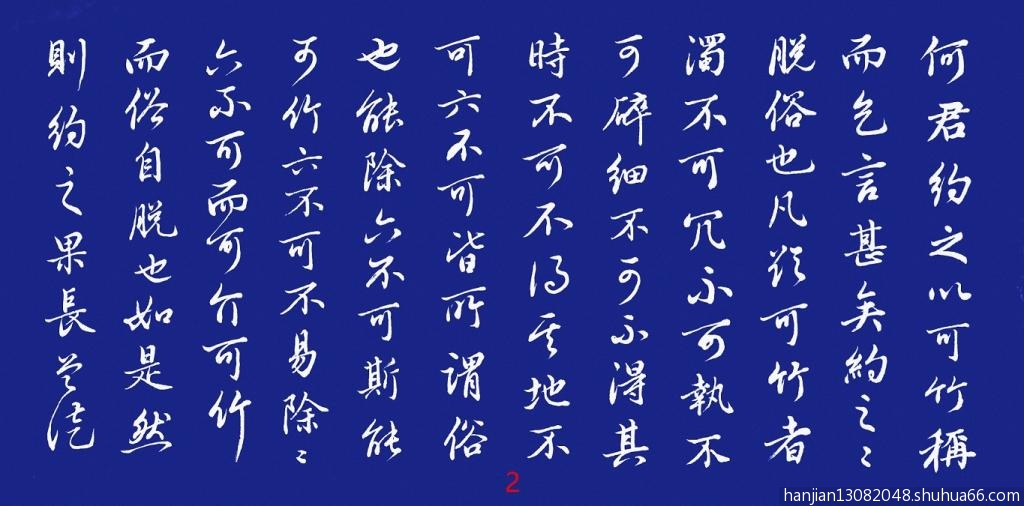 何君約之以可竹稱
而乞言甚矣約之〻
脫俗也凡欲可竹者
濁不可冗不可執不
可碎細不可不得其
時不可不得其地不
可六不可皆所謂俗
也能除六不可斯能
可竹六不可不易除〻
六不可而可可竹
而俗自脫也如是然
則約之果長
2
hanjian13082048.shuhua66.com